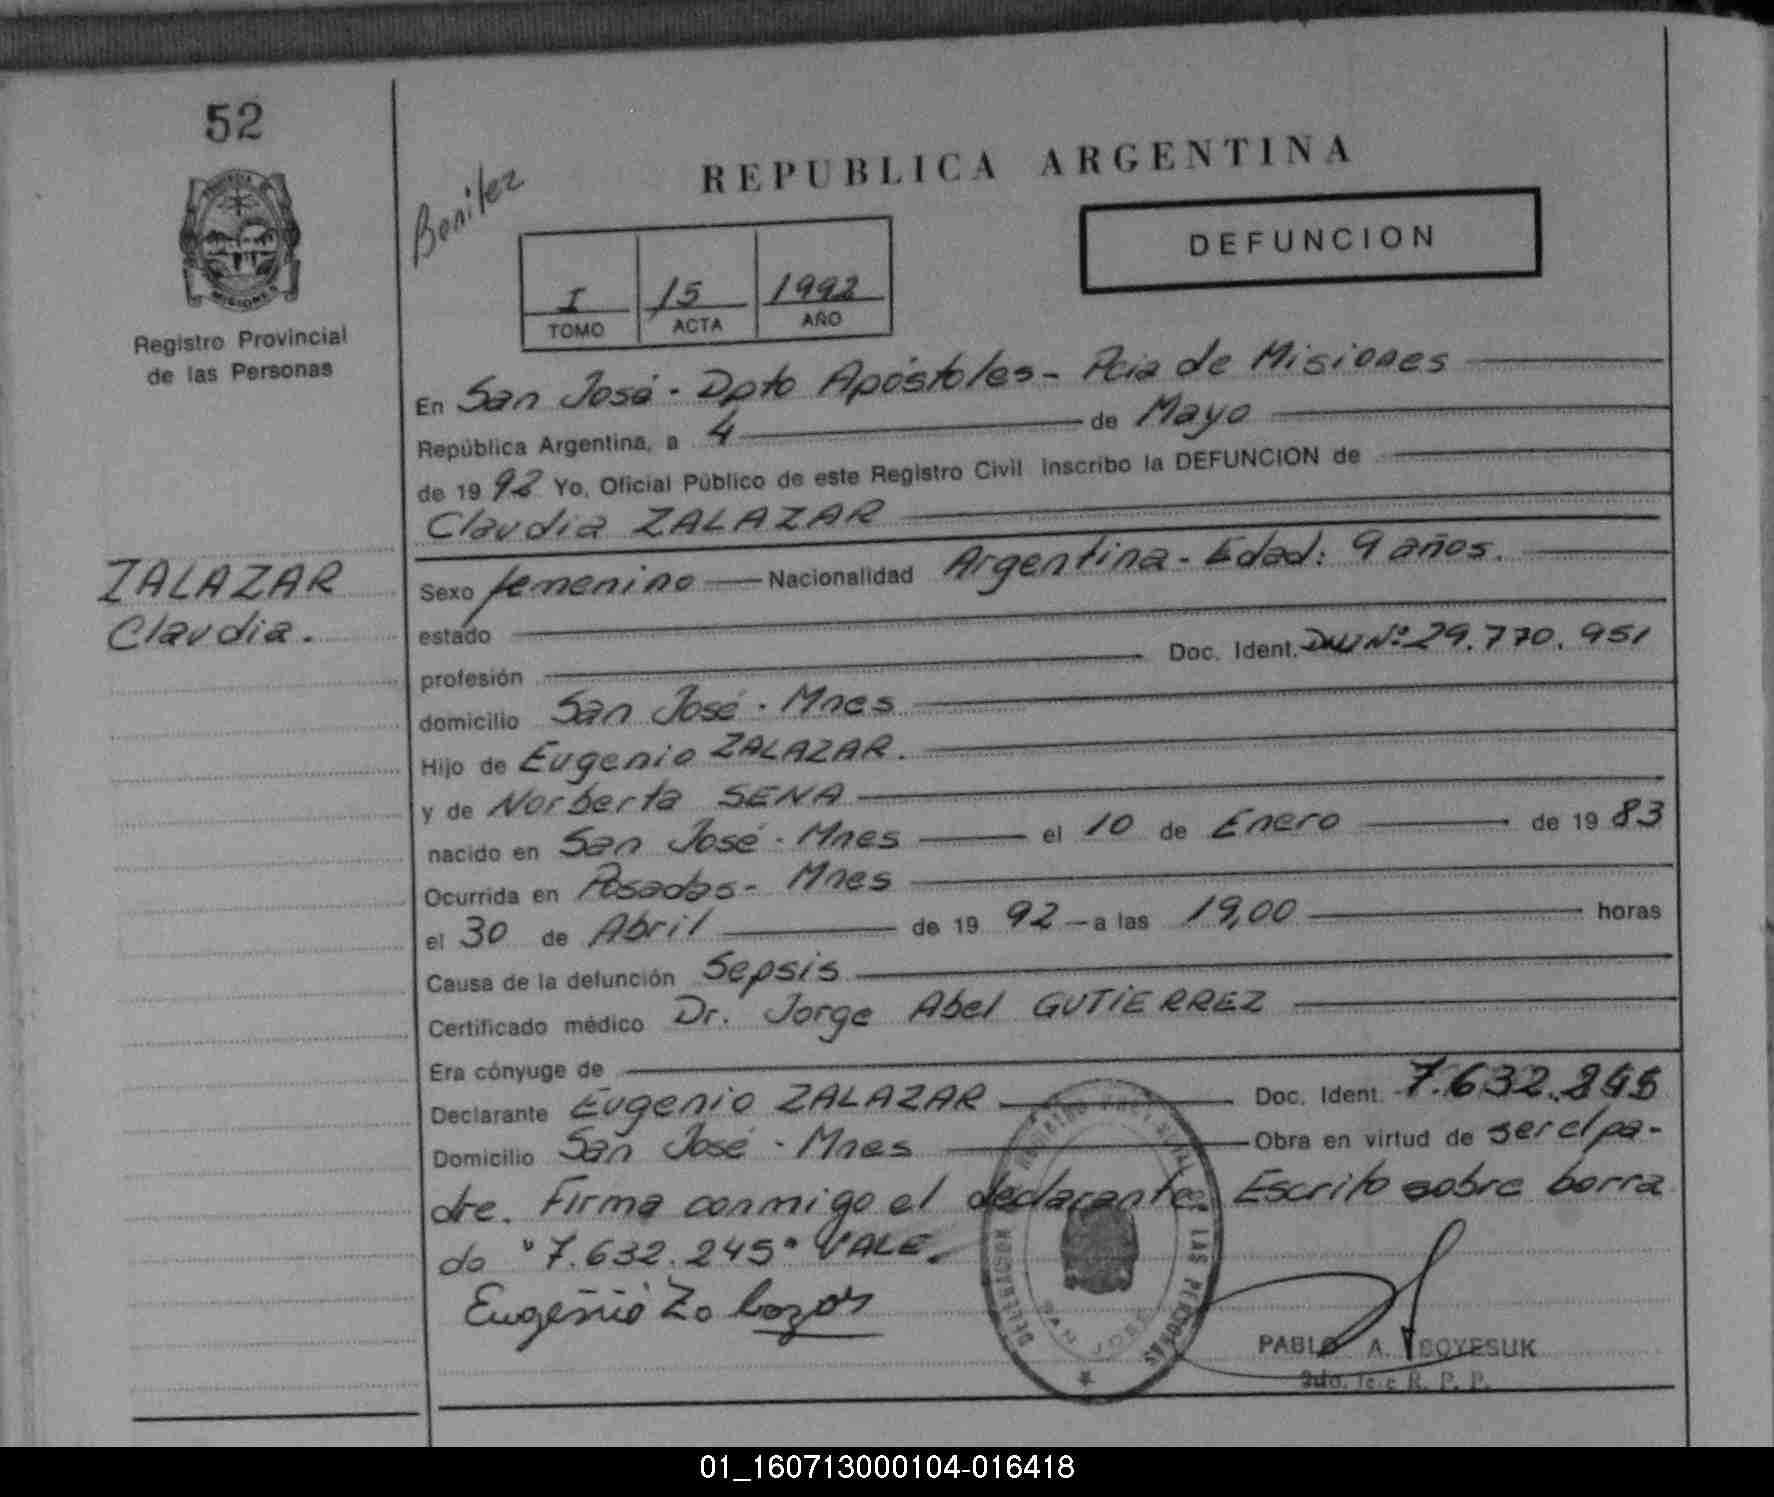 52
MISIONES
Registro Provincial
de las Personas
ZALAZAR
Claudia.
Benitez
REPUBLICA ARGENTINA
I 15 1992
TOMO ACTA AÑO
DEFUNCION
En San José - Dpto Apóstoles - Pcia de Misiones
República Argentina, a 4 de Mayo
de 19 92 Yo, Oficial Público de este Registro Civil inscribo la DEFUNCION de
Claudia ZALAZAR
Sexo femenino Nacionalidad Argentina - Edad: 9 años.
estado
profesión Doc. Ident. DNI Nº 29.770.951
domicilio San José - Mnes
Hijo de Eugenio ZALAZAR.
y de Norberta SENA
nacido en San José - Mnes el 10 de Enero de 19 83
Ocurrida en Posadas - Mnes
el 30 de Abril de 19 92 a las 19,00 horas
Causa de la defunción Sepsis
Certificado médico Dr. Jorge Abel GUTIERREZ
Era cónyuge de
Declarante Eugenio ZALAZAR Doc. Ident. 7.632.245
Domicilio San José - Mnes Obra en virtud de ser el pa-
dre. Firma conmigo el declarante. Escrito sobre borra
do "7.632.245" VALE.
Eugenio Zalazar
DELEGACION REGISTRO PROVINCIAL DE LAS PERSONAS
SAN JOSE
PABLO A. BOYESUK
R. P. P.
01_160713000104-016418